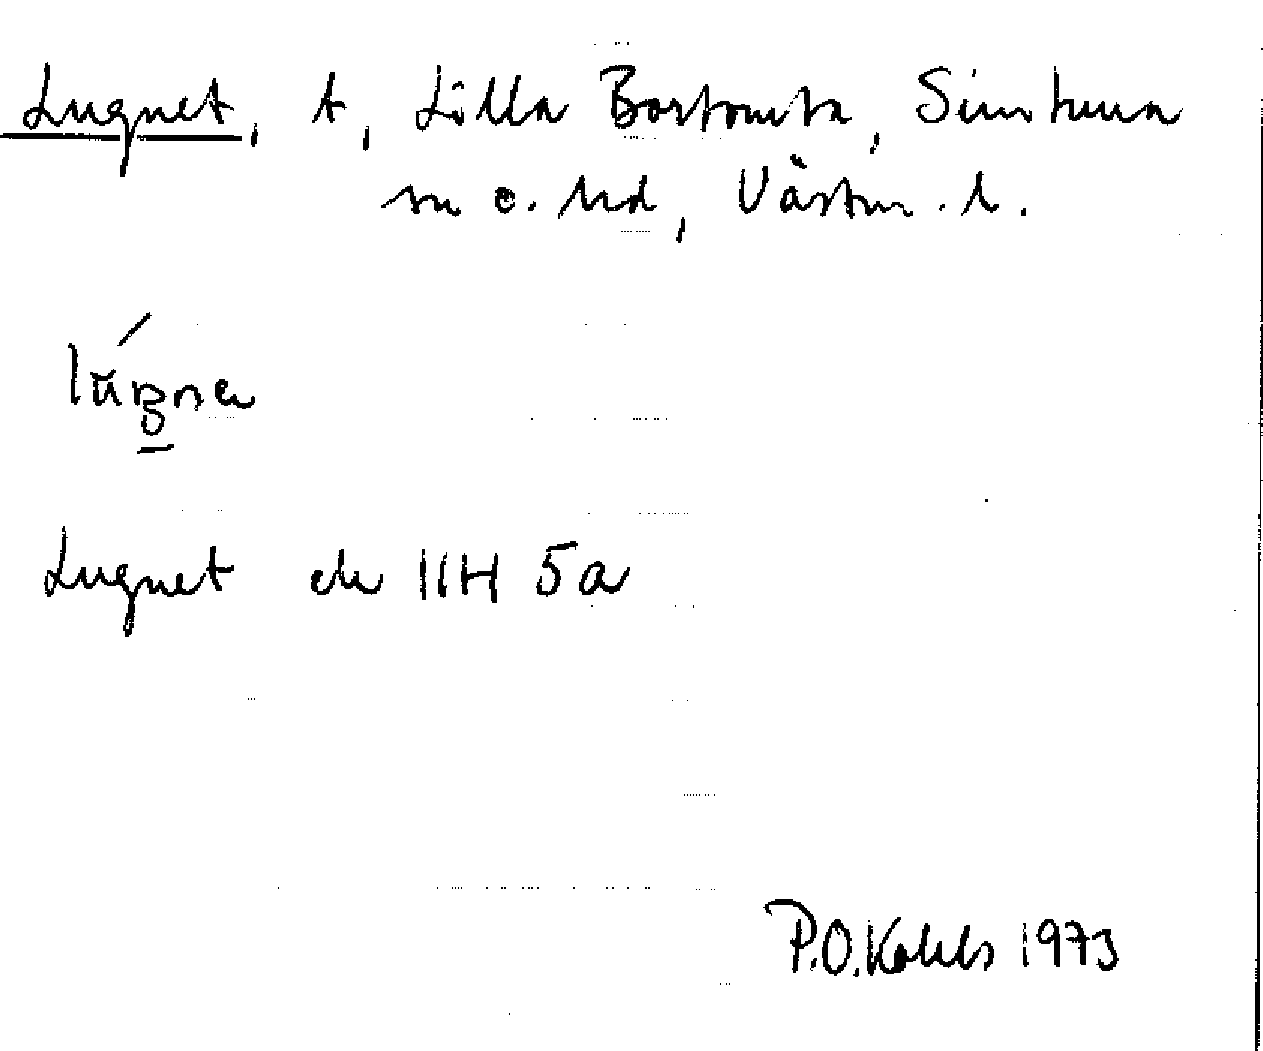 Lugnet, t, Lilla Bortomta, Simtuna
sn o. hd, Västm. l.
Lugnet ek 11H 5a
P.O. 1973